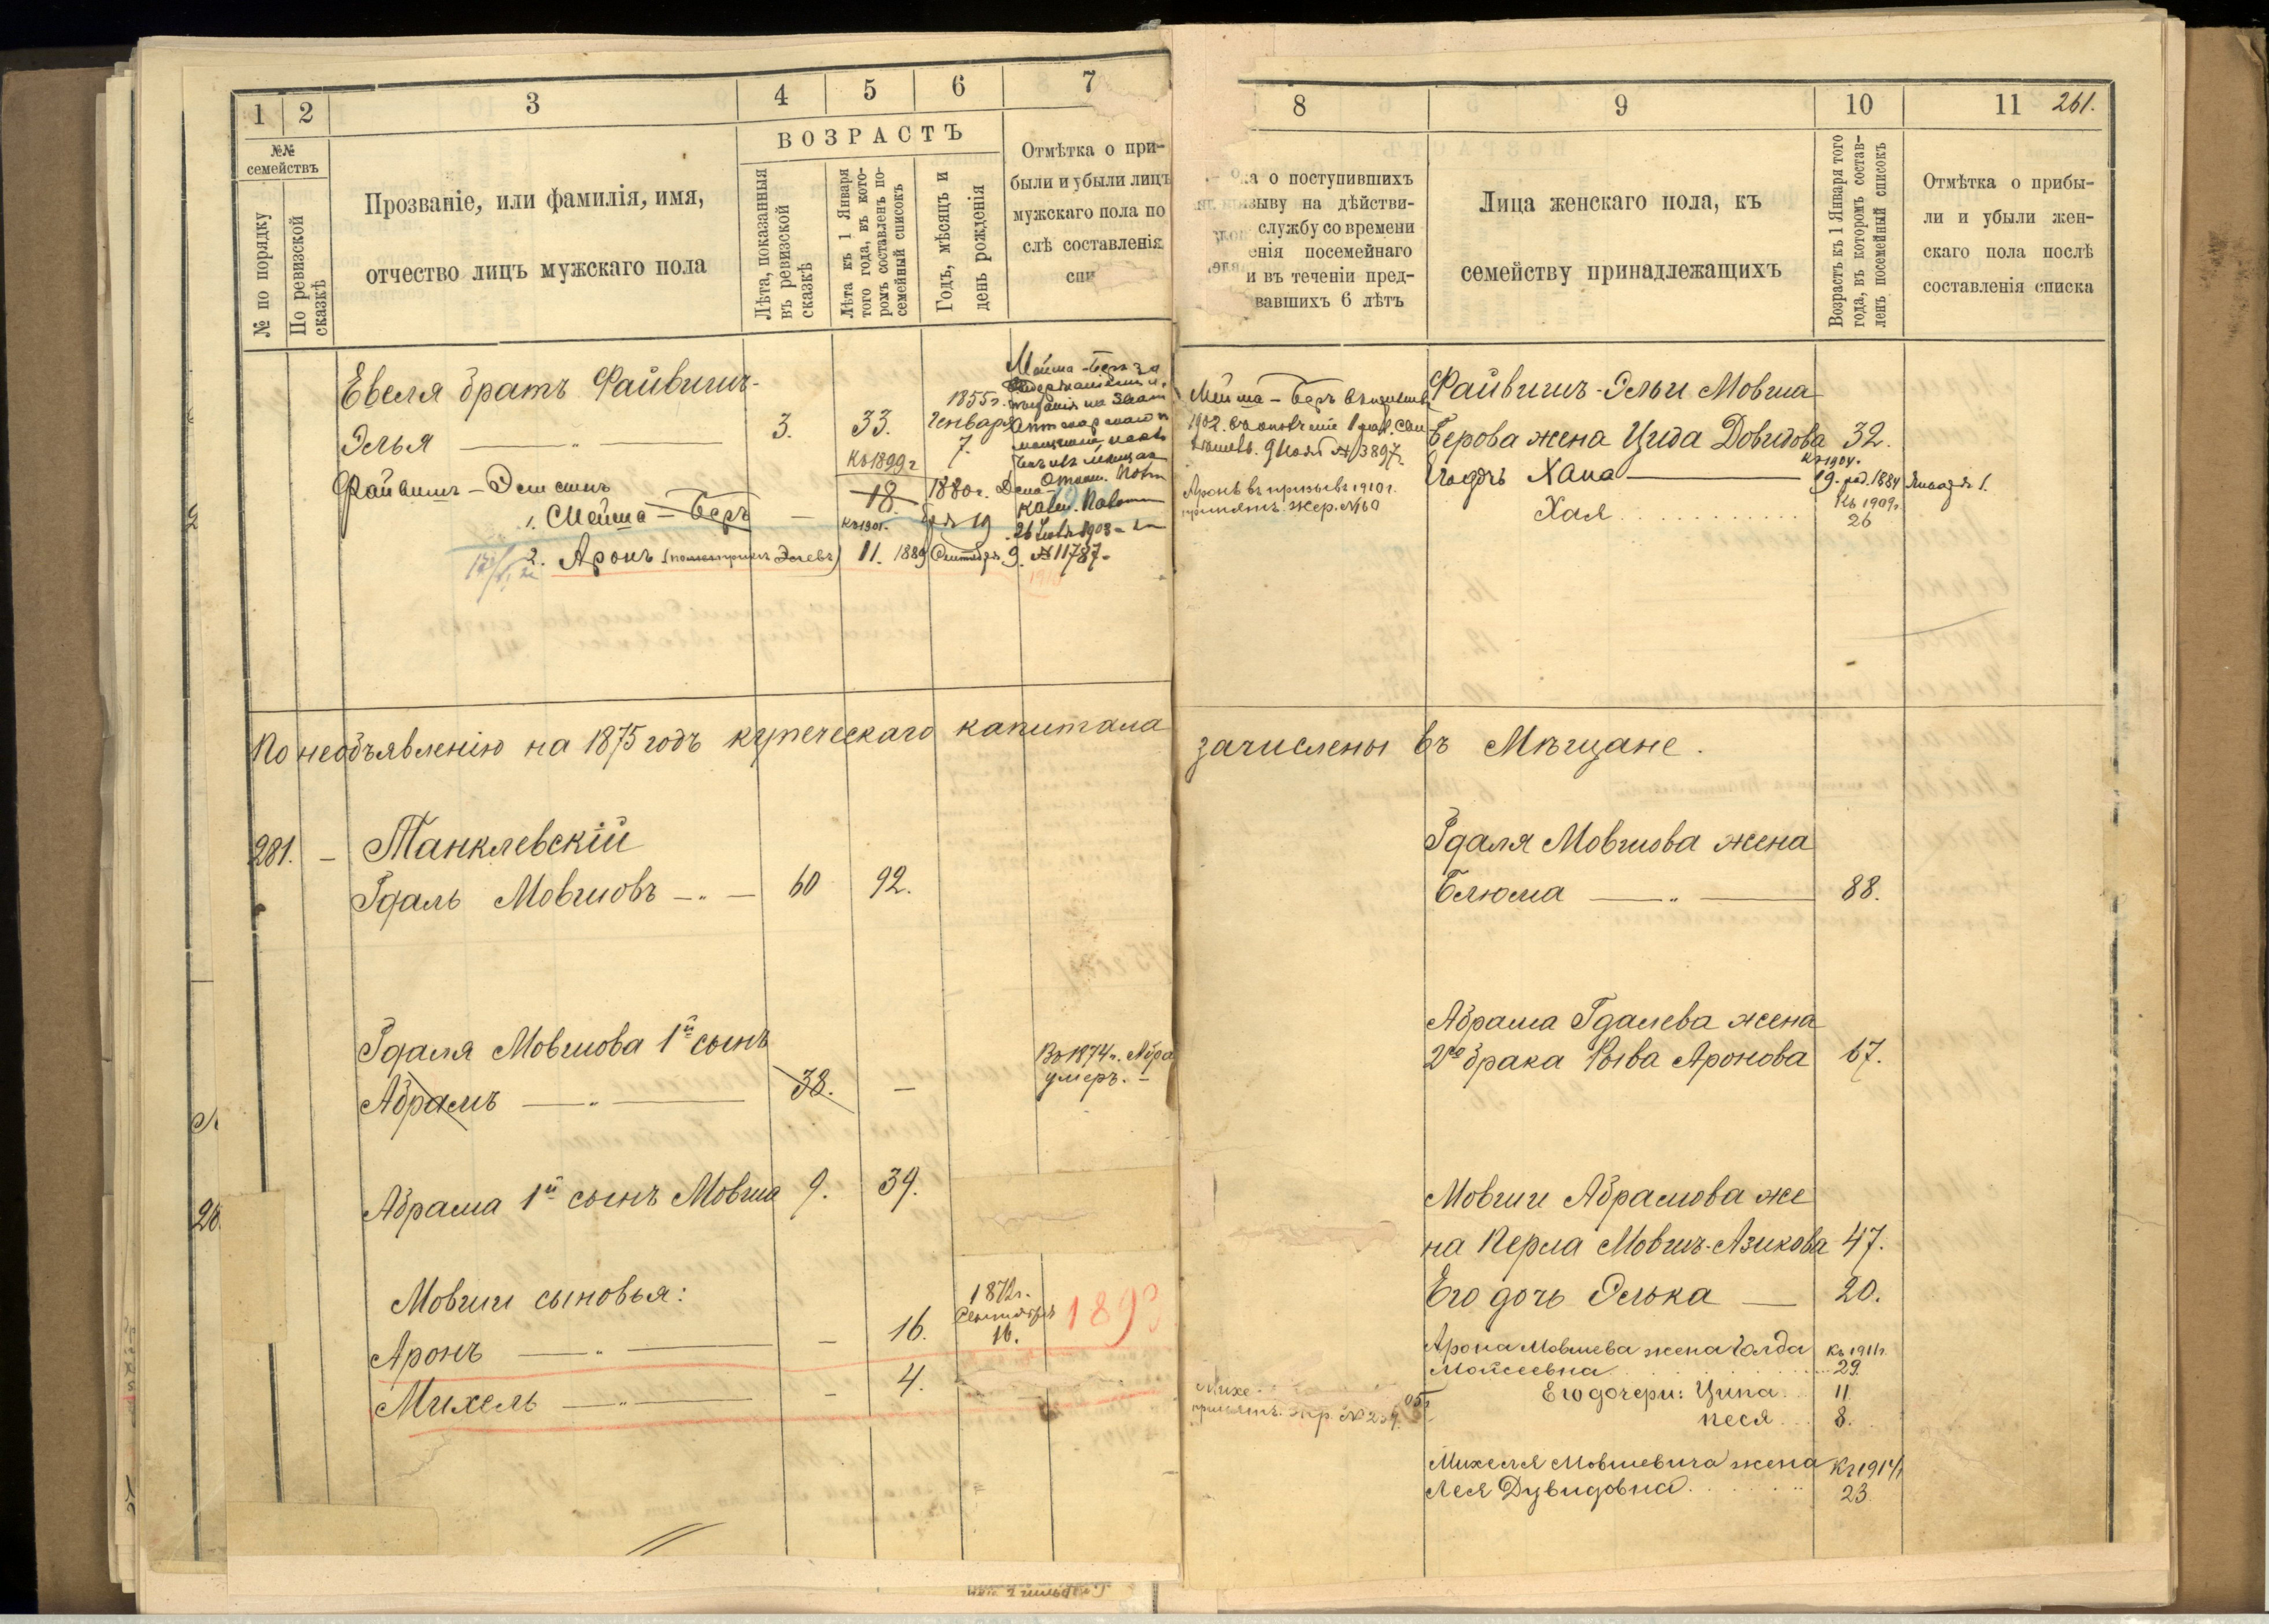 1 2 3 4 5 6 7
№№ семействъ
№ по порядку
По ревизской сказкѣ
Прозваніе, или фамилія, имя,
отчество лицъ мужскаго пола
ВОЗРАСТЪ
Лѣта, показанныя
въ ревизской
сказкѣ
Лѣта къ 1 Января
того года, въ кото-
ромъ составленъ по-
семейный списокъ
Годъ, мѣсяцъ и
день рожденія
Отмѣтка о при-
были и убыли лицъ
мужскаго пола по
слѣ составленія
спи
Евеля братъ Файвишъ-
Элья 3. 33.
1855 г.
Генваря
7.
Къ 1899 г
Файвишъ-Эли сынъ
1. Мейша-Беръ — 18. 1880 г.
19
Къ 1901.
2. Аронъ 11. 1889 Сентября 9. № 11787.
По необъявленію на 1875 годъ купеческаго капитала
281. — Танклевскій
Гдаль Мовшовъ 60 92.
Гдаля Мовшова 1й сынъ
Абрамъ 38. —
Въ 1874 г. Абра
умеръ. —
Абрама 1й сынъ Мовша 9. 39.
Мовши сыновья:
Аронъ — 16.
1872 г.
Сентября
16.
1893
Михель — 4.
8 9 10 11 261.
о поступившихъ
зыву на дѣйстви-
службу со времени
енія посемейнаго
и въ теченіи пред-
вавшихъ 6 лѣтъ
Лица женскаго пола, къ
семейству принадлежащихъ
Возрастъ къ 1 Января того
года, въ которомъ состав-
ленъ посемейный списокъ
Отмѣтка о прибы-
ли и убыли жен-
скаго пола послѣ
составленія списка
Мейша-Беръ
1902.
9 Нояб № 3897
Аронъ въ призывъ 1910 г.
принятъ. жер. № 60
Файвишъ-Эльи Мовша
Берова жена Цида Довидова 32.
Къ 1904.
Его дочь Хана 19. род. 1884 Января 1.
Къ 1909 г.
Хая 26
зачислены въ Мѣщане.
Гдаля Мовшова жена
Блюма 88.
Абрама Гдалева жена
2го брака Рыва Аронова 67.
Мовши Абрамова же
на Перла Мовшъ-Азикова 47.
Его дочь Элька — 20.
Арона Мовшева жена Голда Къ 1911 г.
Моисеевна 29.
Его дочери: Ципа 11
Песя 8.
Михе
принятъ. жер. № 239.
Михеля Мовшевича жена Къ 1914 г
Лея Дувидовна 23